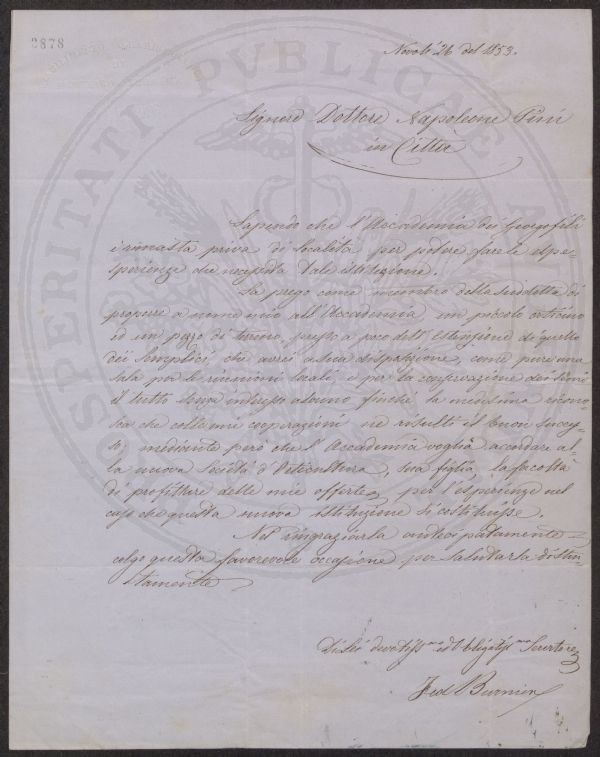 2878
Novoli 26 del 1853.
Signore Dottore Napoleone Pini
in Città
Sapendo che l'Accademia dei Georgofili
è rimasta priva di località per potere fare le espe-
sperienze che necessita tale istituzione.
La prego come membro della suddetta di
proporre a nome mio all'Accademia un piccolo
ed un pezzo di terreno, presso a poco dell'Estenzione di quello
dei Semplici che avrei a sua disposizione, come pure una
sala per le riunioni locali, e per la conservazione dei Semi
il tutto senza interesse alcuno finchè la medesima ricono-
sca che colle mie cooperazioni ne risulti il buon succes-
so, mediante però che l'Accademia voglia accordare al-
la nuova Società d'Orticultura, sua figlia, la facoltà
di profittare delle mie offerte, per l'esperienze nel
caso che questa nuova istituzione si costituisse.
Nel ringraziarla anticipatamente
colgo questa favorevole occasione per salutarla distin-
tamente
Di Lei devotiss.mo ed Obbligatiss.mo Servitore
Fed Burnier
PROSPERITATI PUBLICAE AUGENDAE